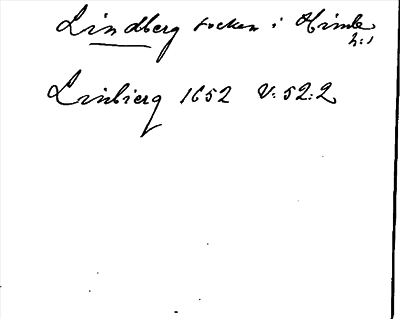 Lindberg socken i Himle
h:d
Linbierg 1652 V:52:2